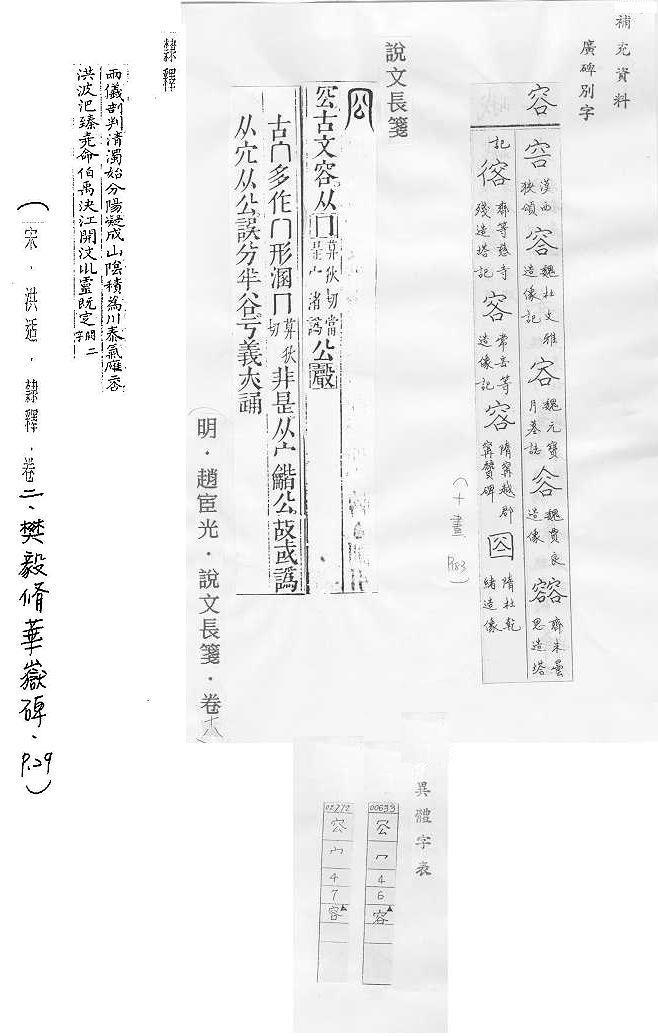 補充資料
廣碑別字
容
容 漢西狹頌 容 魏杜文雅造像記 容 魏元寶月墓誌 㕣 魏賈良造像 容 齊朱曇思造塔
記 齊等慈寺殘造塔記 容 常岳等造像記 容 隋甯越郡甯贙碑 隋杜乾緒造像
(十畫 P.183)
說文長箋
㝐古文容从冂莫狄切當是宀渚譌公嚴
古冂多作冂形溷冂莫狄切非是从宀諧公故或譌
从穴从公誤分半谷亏義大誦
(明.趙宦光.說文長箋.卷十八)
隸釋
兩儀剖判清濁始分陽凝成山陰積為川泰氣雁容
洪波汜臻堯命伯禹決江開汶㠯靈既定闕二字
(宋.洪适.隸釋.卷二.樊毅脩華嶽碑.P.29)
異體字表
00633
4
6
容
02272
㝐
宀
4
7
容